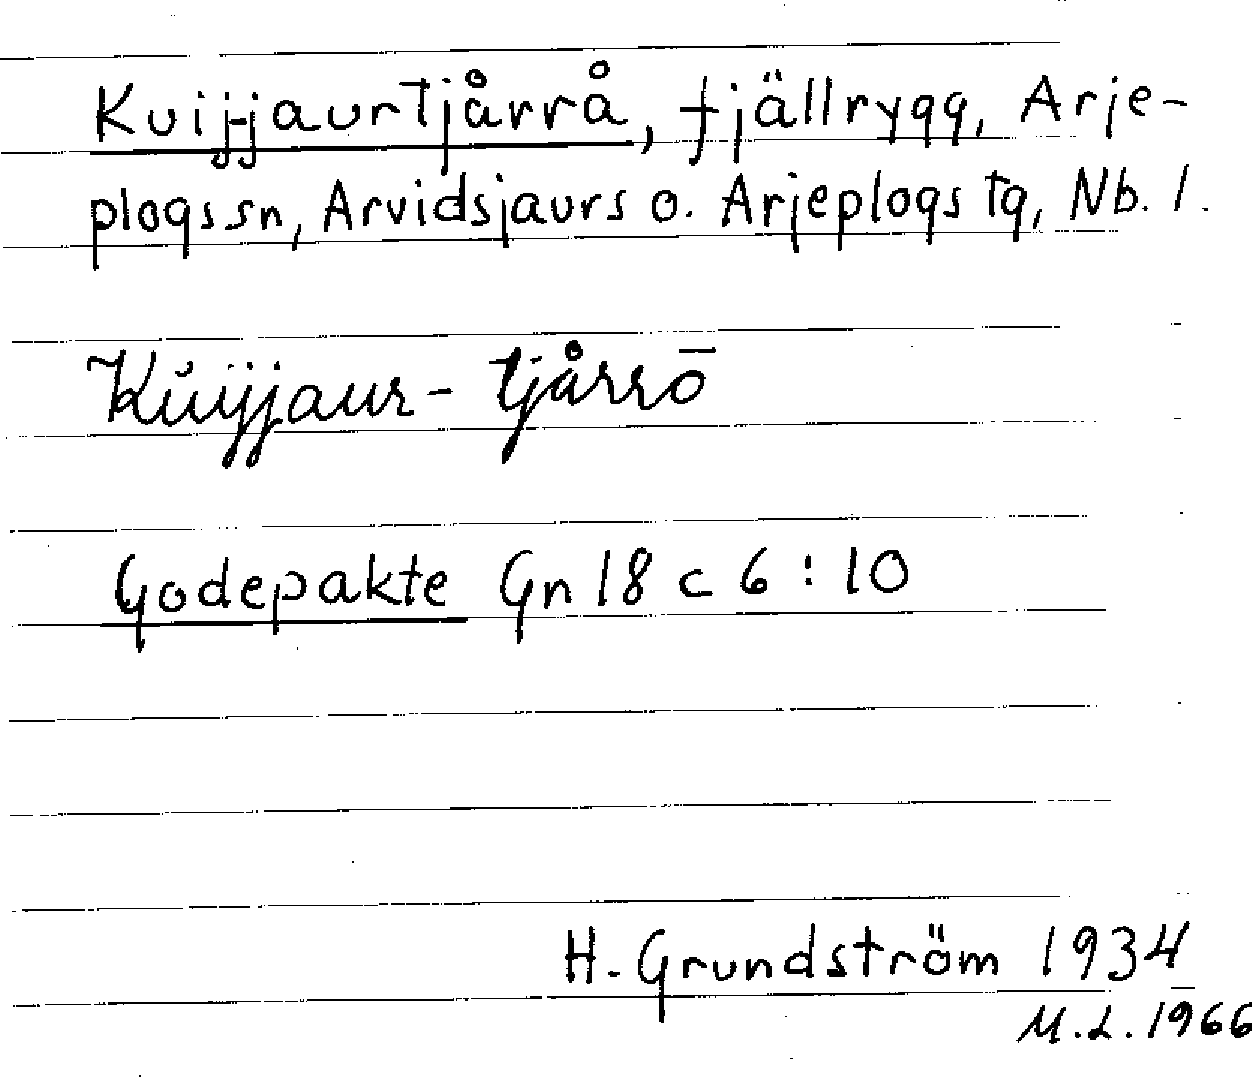 Kuijjaurtjårrå, fjällrygg, Arje-
plogs sn, Arvidsjaurs o. Arjeplogs tg, Nb. l.
Kŭijjaur- tjårrō
Godepakte Gn 18 c 6 : 10
H. Grundström 1934
M.L. 1966